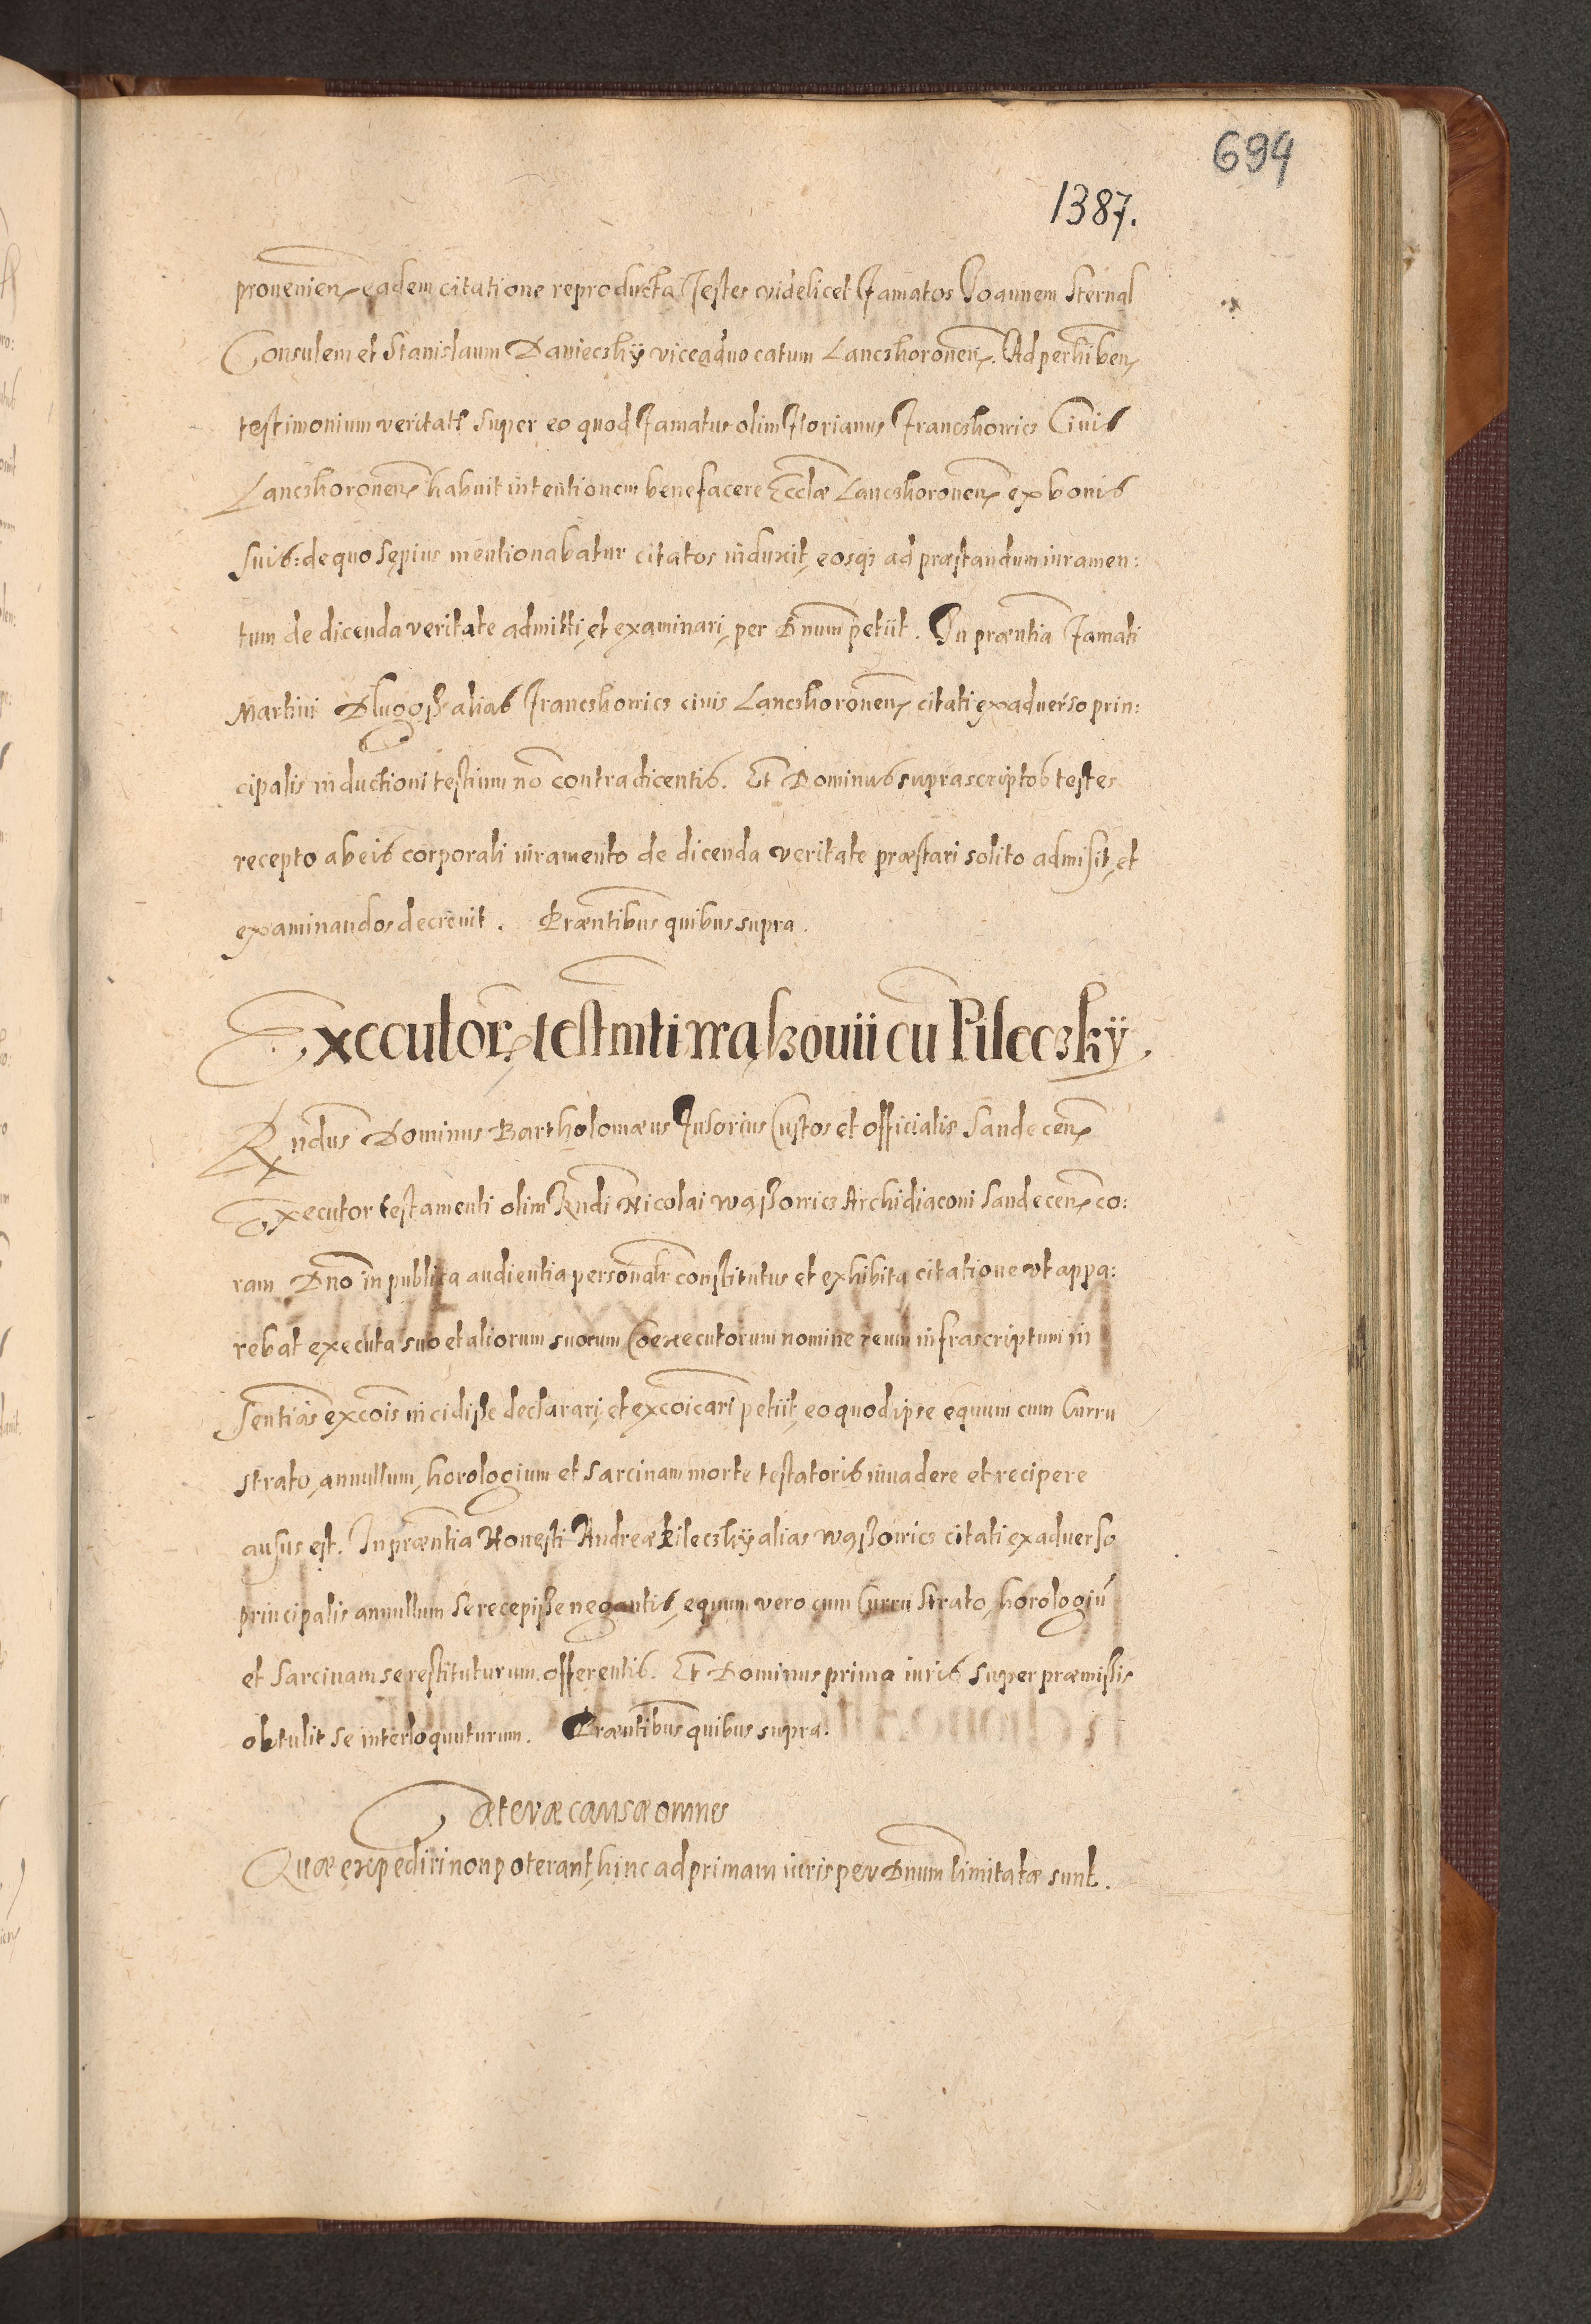 694
1387.
provenien̄ eadem citatione reproducta Testes videlicet Famatos Joannem Sternal
Consulem et Stanislaum Danieczkÿ viceaduocatum Lanczkoronen̄. Ad perhiben̄
testimonium veritatis super eo quod Famatus olim Florianus Franczkowicz Ciuis
Lanczkoronen̄ habuit intentionem benefacere Eccłæ Lanczkoronen̄ ex bonis
suis: de quo sępius mentionabatur citatos induxit, eosqꝫ ad præstandum iuramen:
tum de dicenda veritate admitti, et examinari, per Dnum petiit. In præntia Famati
Martini Dlugoß alias Franczkowicz ciuis Lanczkoronen̄ citati ex aduerso prin:
cipalis inductioni testium no contradicentis. Et Dominus suprascriptos testes
recepto ab eis corporali iuramento de dicenda veritate præstari solito admisit, et
examinandos decreuit. Præntibus quibus supra.
Executor testmti Wąßouii cū Pileczkÿ.
Rndus Dominus Bartholomæus Fusorius Custos et officialis Sandecen̄
Executor testamenti olim Rndi Nicolai Wąßowicz Archidiaconi Sandecen̄ co:
ram Dno in publica audientia personalr constitutus et exhibita citatione vt appa:
rebat executa suo et aliorum suorum Coexecutorum nomine reum infrascriptum in
sentias excois incidiße declarari, et excoicari petiit, eo quod ipse equum cum Curru
strato, annullum, horologium et sarcinam morte testatoris inuadere et recipere
ausus est. In præntia Honesti Andreæ Pileczkÿ alias Wąßowicz citati ex aduerso
principalis annullum se recepiße negantis, equum vero cum Curru strato, horologiū
et sarcinam se restituturum offerentis. Et Dominus prima iuris super præmissis
obtulit se interloquuturum. Præntibus quibus supra.
Cæteræ causæ omnes
Quæ expediri non poterant, hinc ad primam iuris per Dnum limitatæ sunt.